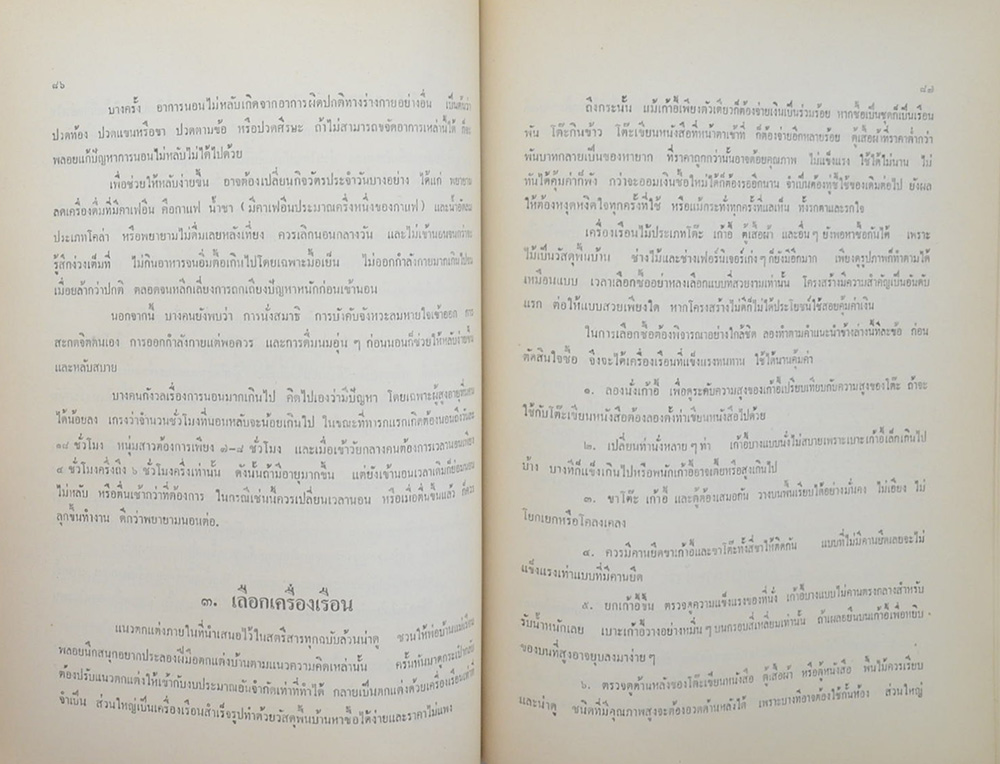 ๘๖
บางครั้ง อาการนอนไม่หลับเกิดจากอาการผิดปกติทางร่างกายอย่างอื่น เป็นต้นว่า
ปวดท้อง ปวดแขนหรือขา ปวดตามข้อ หรือปวดศีรษะ ถ้าไม่สามารถขจัดอาการเหล่านี้ได้ ก็จะ
พลอยแก้ปัญหาการนอนไม่หลับไม่ได้ไปด้วย
เพื่อช่วยให้หลับง่ายขึ้น อาจต้องเปลี่ยนกิจวัตรประจำวันบางอย่าง ได้แก่ พยายาม
ลดเครื่องดื่มที่มีคาเฟอีน คือกาแฟ น้ำชา (มีคาเฟอีนประมาณครึ่งหนึ่งของกาแฟ) และน้ำอัดลม
ประเภทโคล่า หรือพยายามไม่ดื่มเลยหลังเที่ยง ควรเลิกนอนกลางวัน และไม่เข้านอนจนกว่าจะ
รู้สึกง่วงเต็มที่ ไม่กินอาหารจนอิ่มตื้อเกินไปโดยเฉพาะมื้อเย็น ไม่ออกกำลังกายมากเกินไป
เมื่อยล้ากว่าปกติ ตลอดจนหลีกเลี่ยงการถกเถียงปัญหาหนักก่อนเข้านอน
นอกจากนี้ บางคนยังพบว่า การนั่งสมาธิ การบังคับจังหวะลมหายใจเข้าออก การ
สะกดจิตตนเอง การออกกำลังกายแต่พอควร และการดื่มนมอุ่น ๆ ก่อนนอนก็ช่วยให้หลับง่ายขึ้น
และหลับสบาย
บางคนกังวลเรื่องการนอนมากเกินไป คิดไปเองว่ามีปัญหา โดยเฉพาะผู้สูงอายุที่นอน
ได้น้อยลง เกรงว่าจำนวนชั่วโมงที่นอนหลับจะน้อยเกินไป ในขณะที่ทารกแรกเกิดต้องนอนถึงวันละ
๑๘ ชั่วโมง หนุ่มสาวต้องการเพียง ๗-๘ ชั่วโมง และเมื่อเข้าวัยกลางคนต้องการเวลานอนเพียง
๕ ชั่วโมงครึ่งถึง ๖ ชั่วโมงครึ่งเท่านั้น ดังนั้นถ้ามีอายุมากขึ้น แต่ยังเข้านอนเวลาเดิมก็ย่อมนอน
ไม่หลับ หรือตื่นเช้ากว่าที่ต้องการ ในกรณีเช่นนี้ควรเปลี่ยนเวลานอน หรือเมื่อตื่นขึ้นแล้ว ก็ควร
ลุกขึ้นทำงาน ดีกว่าพยายามนอนต่อ.
๓. เลือกเครื่องเรือน
แนวตกแต่งภายในที่นำเสนอไว้ในสตรีสารทุกฉบับล้วนน่าดู ชวนให้พ่อบ้านแม่เรือน
พลอยนึกสนุกอยากประลองฝีมือตกแต่งบ้านตามแนวความคิดเหล่านั้น ครั้นหันมาดูกระเป๋า
ต้องปรับแนวตกแต่งให้เข้ากับงบประมาณอันจำกัดเท่าที่ทำได้ กลายเป็นตกแต่งด้วยเครื่องเรือนเท่าที่
จำเป็น ส่วนใหญ่เป็นเครื่องเรือนสำเร็จรูปทำด้วยวัสดุพื้นบ้านหาซื้อได้ง่ายและราคาไม่แพง
๘๗
ถึงกระนั้น แม้เก้าอี้เพียงตัวเดียวก็ต้องจ่ายเงินเป็นร่วมร้อย หากซื้อเป็นชุดก็เป็นเรือน
พัน โต๊ะกินข้าว โต๊ะเขียนหนังสือที่หน้าตาเข้าที ก็ต้องจ่ายอีกหลายร้อย ตู้เสื้อผ้าที่ราคาต่ำกว่า
พันบาทกลายเป็นของหายาก ที่ราคาถูกกว่านั้นอาจด้อยคุณภาพ ไม่แข็งแรง ใช้ได้ไม่นาน ไม่
ทันได้คุ้มค่าก็พัง กว่าจะออมเงินซื้อใหม่ได้ก็ต้องรออีกนาน จำเป็นต้องทู่ซี้ใช้ของเดิมต่อไป ยังผล
ให้ต้องหงุดหงิดใจทุกครั้งที่ใช้ หรือแม้กระทั่งทุกครั้งที่แลเห็น ทั้งรกตาและรกใจ
เครื่องเรือนไม้ประเภทโต๊ะ เก้าอี้ ตู้เสื้อผ้า และอื่น ๆ ยังพอหาซื้อกันได้ เพราะ
ไม้เป็นวัสดุพื้นบ้าน ช่างไม้และช่างเฟอร์นิเจอร์เก่ง ๆ ก็ยังมีอีกมาก เพียงดูรูปภาพก็ทำตามได้
เหมือนแบบ เวลาเลือกซื้ออย่าหลงเลือกแบบที่สวยงามเท่านั้น โครงสร้างมีความสำคัญเป็นอันดับ
แรก ต่อให้แบบสวยเพียงใด หากโครงสร้างไม่ดีก็ไม่ได้ประโยชน์ใช้สอยคุ้มค่าเงิน
ในการเลือกซื้อต้องพิจารณาอย่างใกล้ชิด ลองทำตามคำแนะนำข้างล่างนี้ทีละข้อ ก่อน
ตัดสินใจซื้อ จึงจะได้เครื่องเรือนที่แข็งแรงทนทาน ใช้ได้นานคุ้มค่า
๑. ลองนั่งเก้าอี้ เพื่อดูระดับความสูงของเก้าอี้เปรียบเทียบกับความสูงของโต๊ะ ถ้าจะ
ใช้กับโต๊ะเขียนหนังสือต้องลองตั้งท่าเขียนหนังสือไปด้วย
๒. เปลี่ยนท่านั่งหลาย ๆ ท่า เก้าอี้บางแบบนั่งไม่สบายเพราะเบาะเก้าอี้เล็กเกินไป
บ้าง บางทีก็แข็งเกินไปหรือพนักเก้าอี้อาจเตี้ยหรือสูงเกินไป
๓. ขาโต๊ะ เก้าอี้ และตู้ต้องเสมอกัน วางบนพื้นเรียบได้อย่างมั่นคง ไม่เอียง ไม่
โยกเยกหรือโคลงเคลง
๔. ควรมีคานยึดขาเก้าอี้และขาโต๊ะทั้งสี่ขาให้ติดกัน แบบที่ไม่มีคานยึดเลยจะไม่
แข็งแรงเท่าแบบที่มีคานยึด
๕. ยกเก้าอี้ขึ้น ตรวจดูความแข็งแรงของที่นั่ง เก้าอี้บางแบบไม่มีคานตรงกลางสำหรับ
รับน้ำหนักเลย เบาะเก้าอี้วางอย่างหมิ่น ๆ บนกรอบสี่เหลี่ยมเท่านั้น ถ้าเผลอยืนบนเก้าอี้เพื่อหยิบ
ของบนที่สูงอาจยุบลงมาง่าย ๆ
๖. ตรวจดูด้านหลังของโต๊ะเขียนหนังสือ ตู้เสื้อผ้า หรือตู้หนังสือ พื้นไม้ควรเรียบ
และน่าดู ชนิดที่มีคุณภาพสูงจะต้องอวดด้านหลังได้ เพราะบางทีอาจต้องใช้กั้นห้อง ส่วนใหญ่